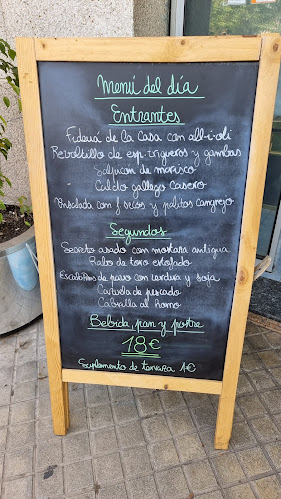 Menú del día
Entrantes
Fideuá de la casa con all-i-oli
Revoltillo de esp. trigueros y gambas
Salpicón de marisco
Caldo gallego casero
Ensalada con f. secos y palitos cangrejo
Segundos
Secreto asado con mostaza antigua
Rabo de toro estofado
de pavo con verdura y soja
de pescado
Cabrilla al horno
Bebida, pan y postre
18€
Suplemento de terraza 1€